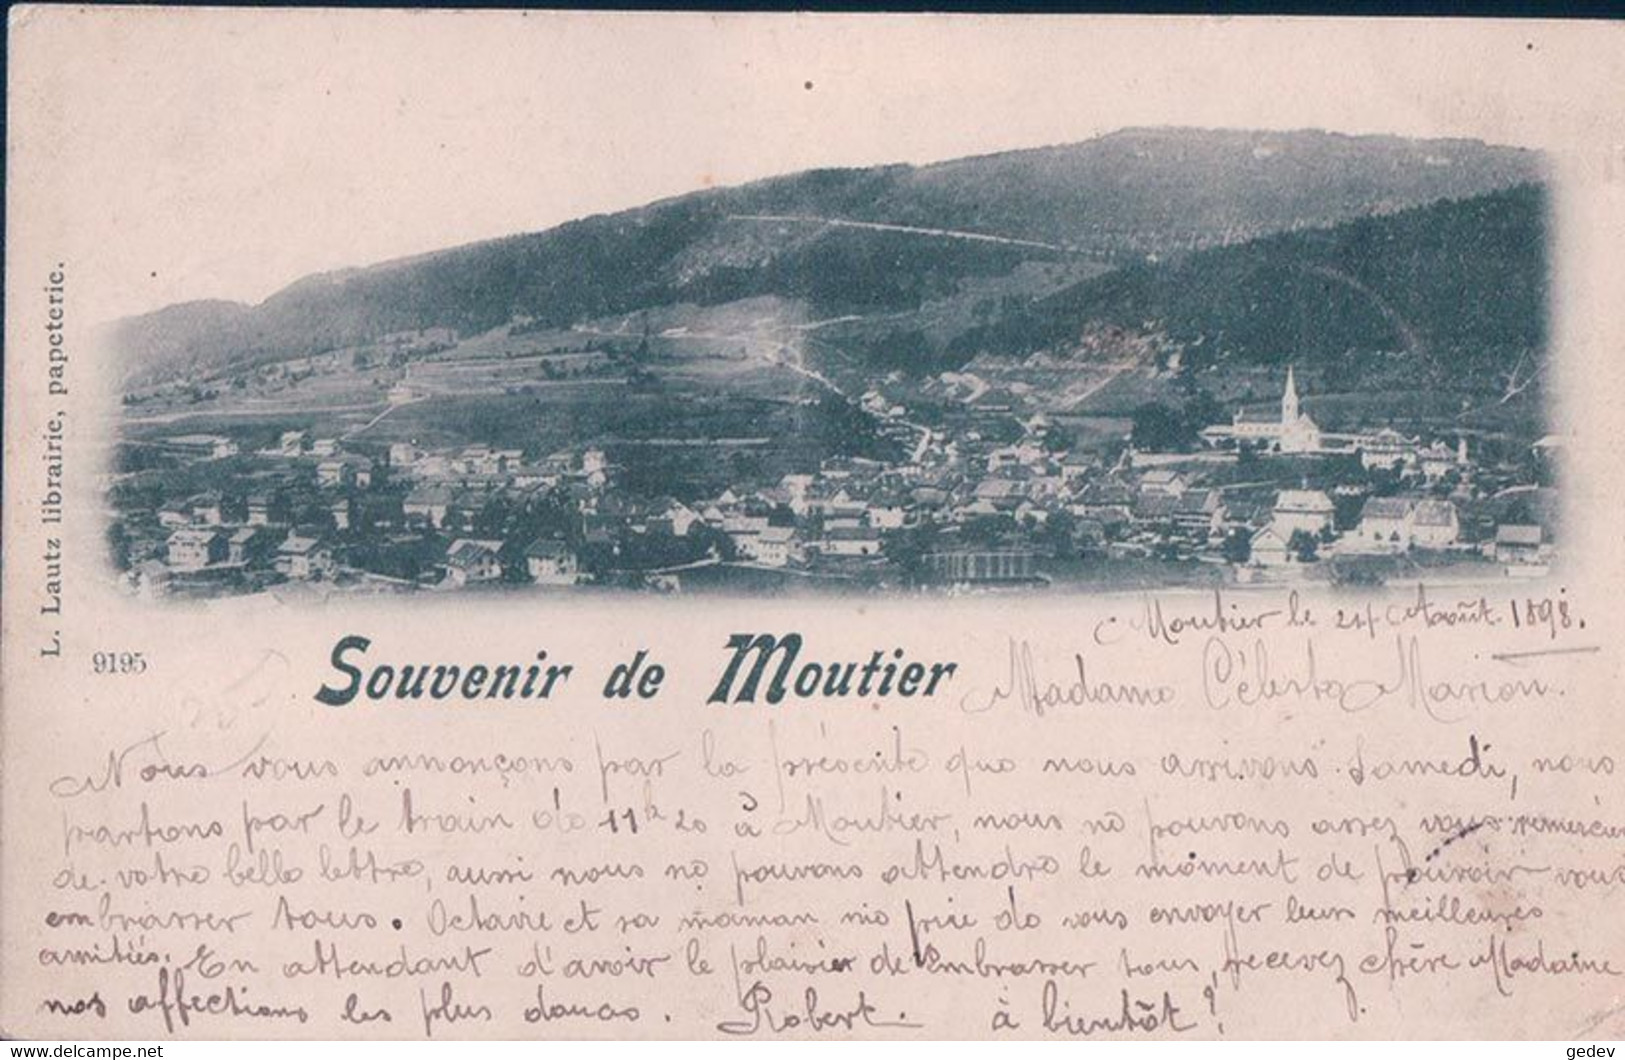 L. Lautz librairie, papeterie.
9195
Souvenir de Moutier
Moutier le 24 Août 1898.
Madame Célesta Marion.
Nous vous annonçons par la présente que nous arrivons Samedi, nous
partions par le train de 11h 20 à Moutier, nous ne pouvons assez vous remercier
de votre belle lettre, aussi nous ne pouvons attendre le moment de pouvoir vous
embrasser tous. Octavie et sa maman me prie de vous envoyer leurs meilleures
amitiés. En attendant d'avoir le plaisir de embrasser tous, recevez chère Madame
nos affections les plus douces. Robert. à bientôt !
gedev
delcampe.net